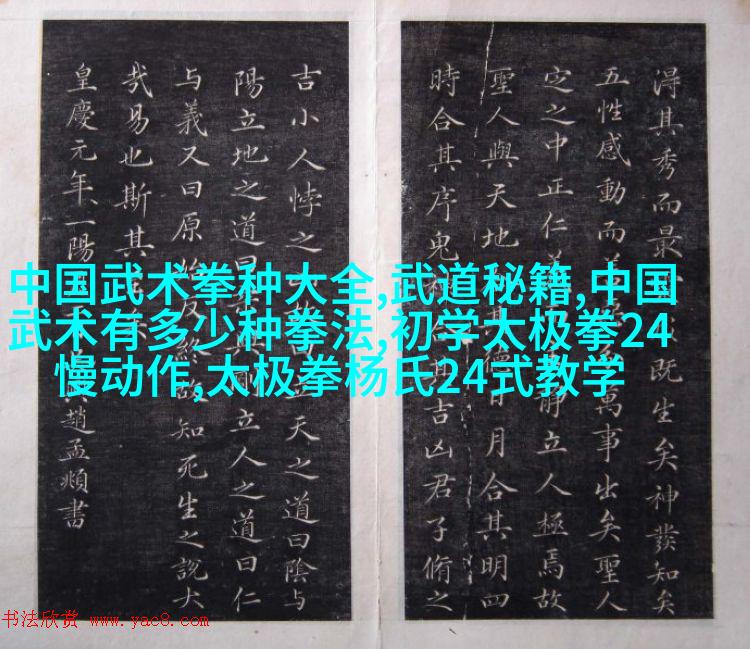 淂其秀而最既生矣神發知矣
五性感動而萬事出矣聖人
定之中正仁靜立人極焉故
聖人與天地其德日月合其明四
時合其序鬼吉凶君子脩之
吉小人悖之故曰天之道曰陰与
陽立地之道曰立人之道曰仁
与義又曰原始反終故知死生之說大
哉易也斯其
皇慶元年一陽趙孟頫書
中国武术拳种大全,武道秘籍,中国
武术有多少种拳法,初学太极拳24
慢动作,太极拳杨氏24式教学
书法欣赏 www.yac8.com